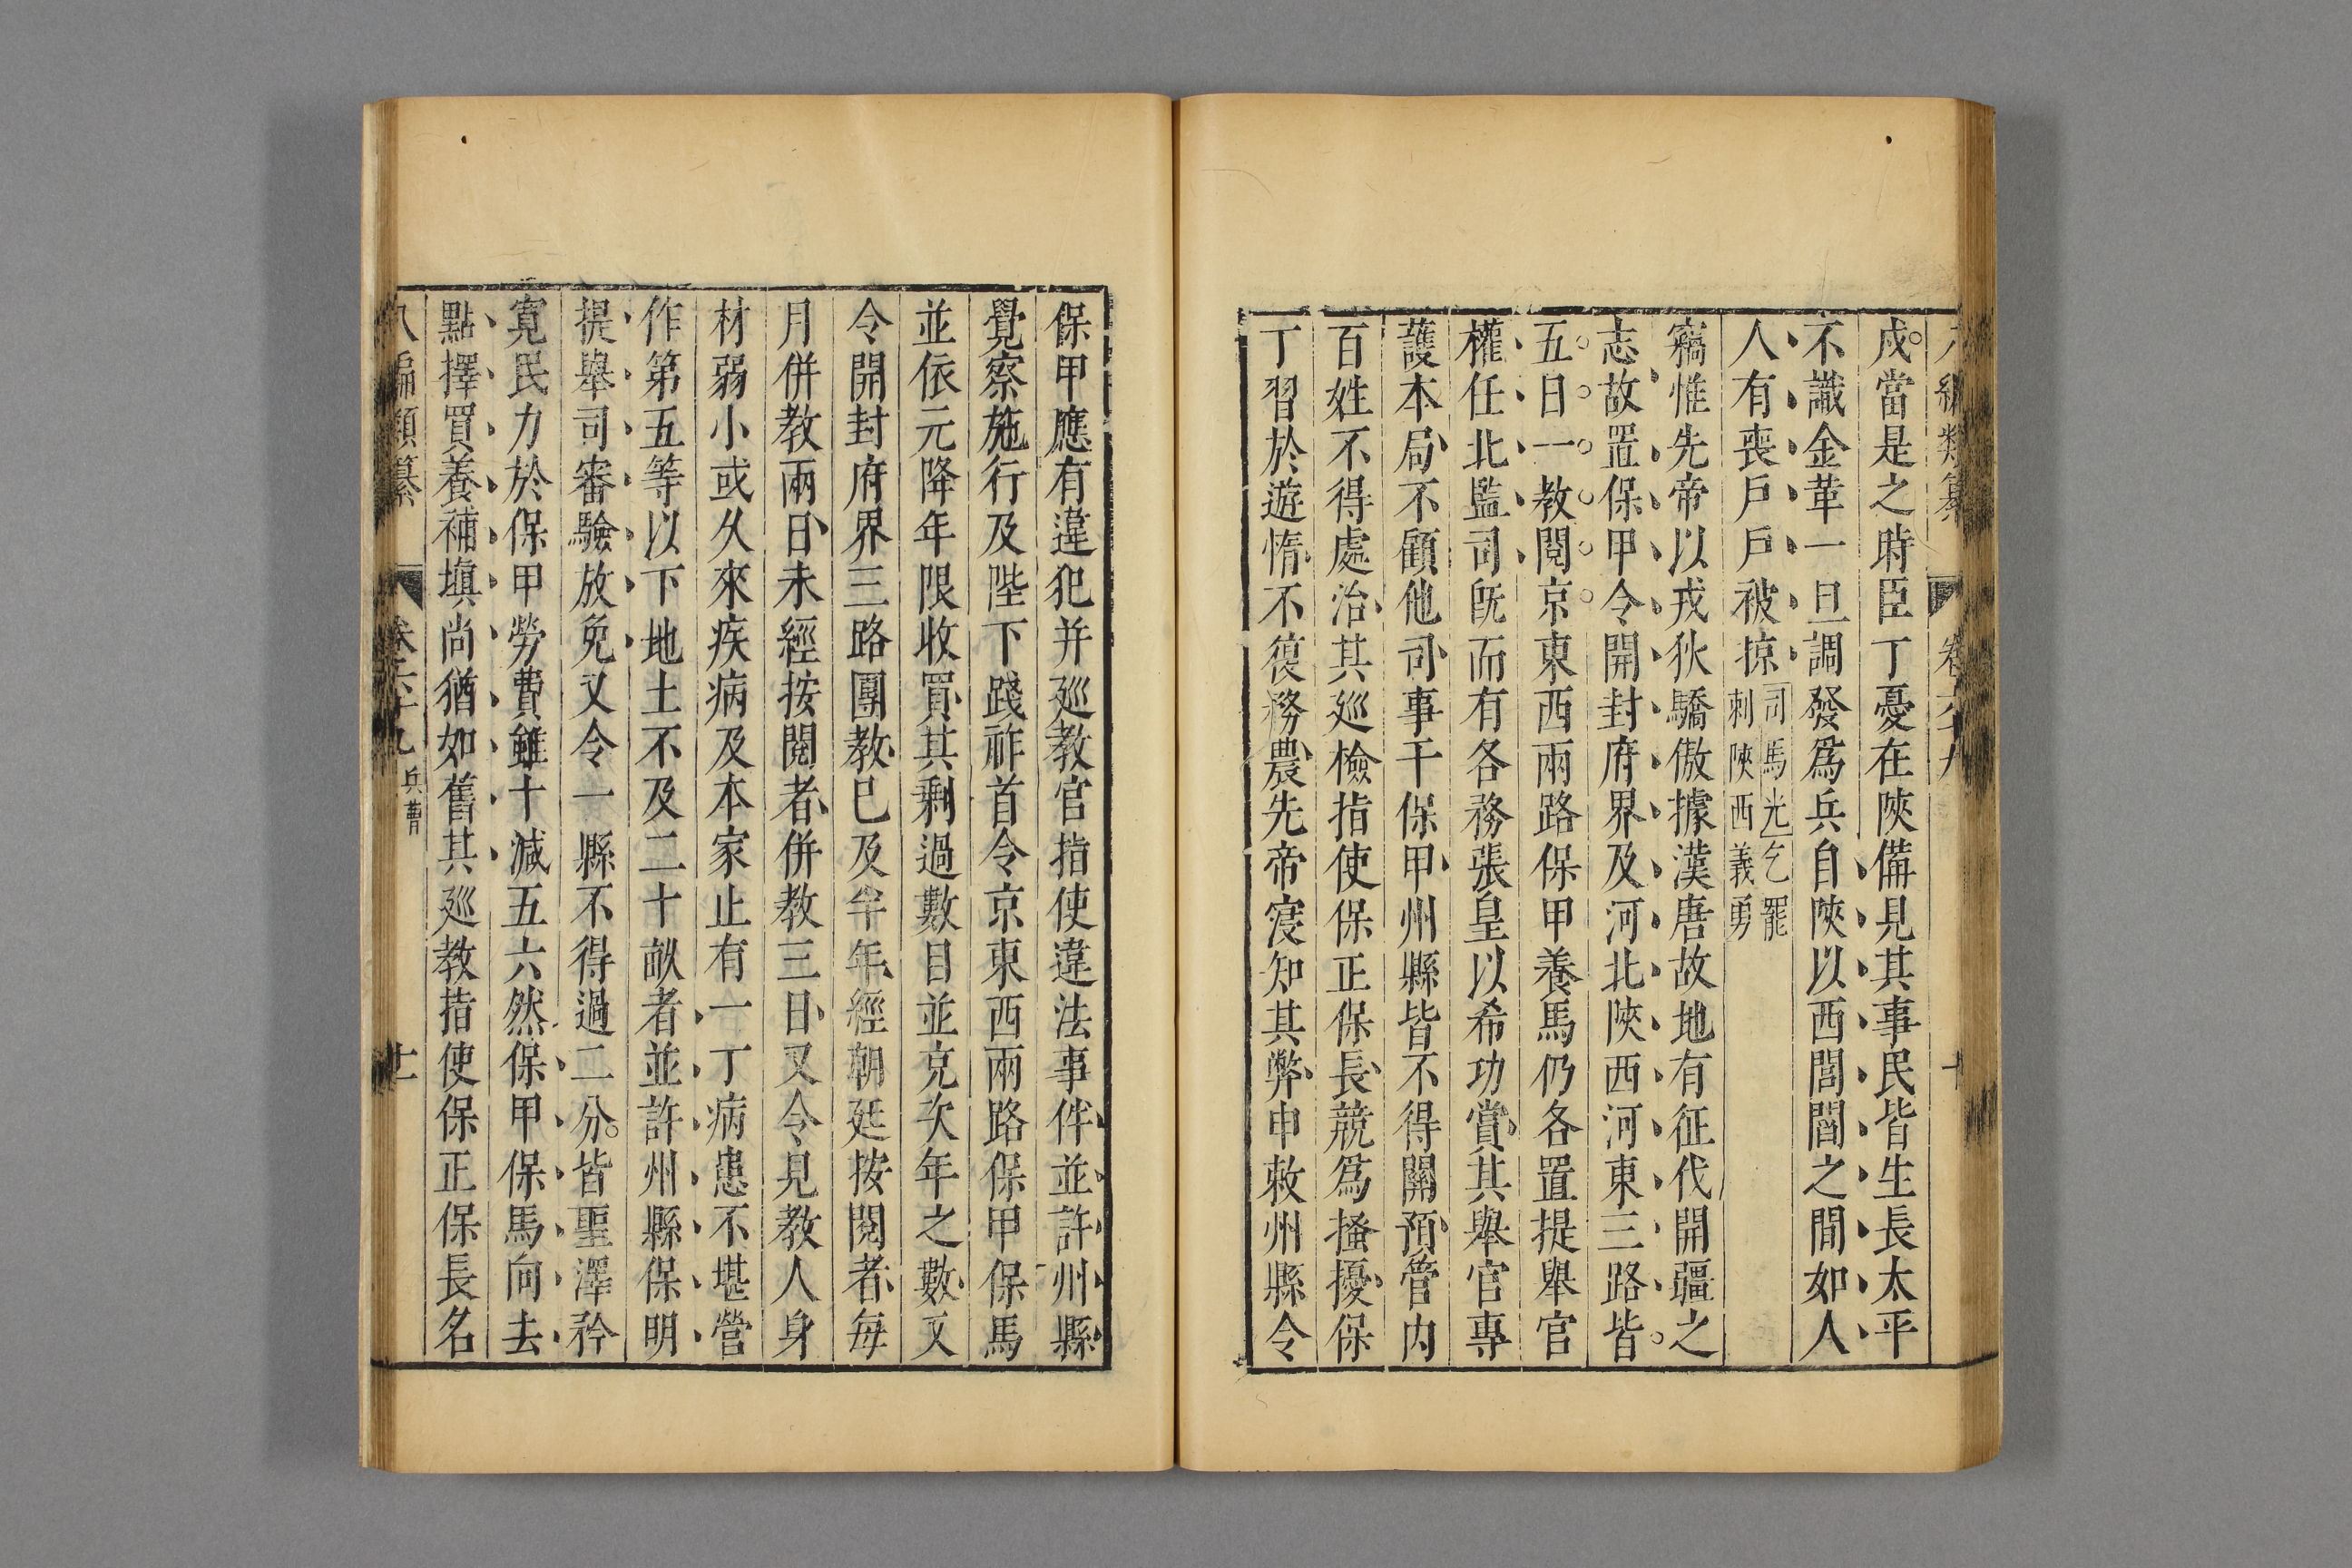 戍當是之時臣丁憂在陝備見其事民皆生長太平
不識金革一旦調發爲兵自陝以西閭閻之間如人
人有喪戶戶被掠司馬光乞罷刺陝西義勇
竊惟先帝以戎狄驕傲據漢唐故地有征伐開疆之
志故置保甲令開封府界及河北陝西河東三路皆
五日一教閱京東西兩路保甲養馬仍各置提舉官
權任北監司既而有各務張皇以希功賞其舉官專
護本局不顧他司事干保甲州縣皆不得關預管内
百姓不得處治其廵檢指使保正保長競爲搔擾保
丁習於遊惰不復務農先帝寖知其弊申敕州縣令
保甲應有違犯并廵教官指使違法事件並許州縣
覺察施行及陛下踐祚首令京東西兩路保甲保馬
並依元降年限收買其剩過數目並克次年之數又
令開封府界三路團教已及半年經朝廷按閱者每
月併教兩日未經按閱者併教三日又令見教人身
材弱小或久來疾病及本家止有一丁病患不堪營
作第五等以下地土不及二十畝者並許州縣保明
提舉司審驗放免又令一縣不得過二分皆聖澤矜
寛民力於保甲勞費雖十減五六然保甲保馬向去
點擇買養補塡尚猶如舊其廵教指使保正保長名
八編類纂 卷六十九 兵曹 十一